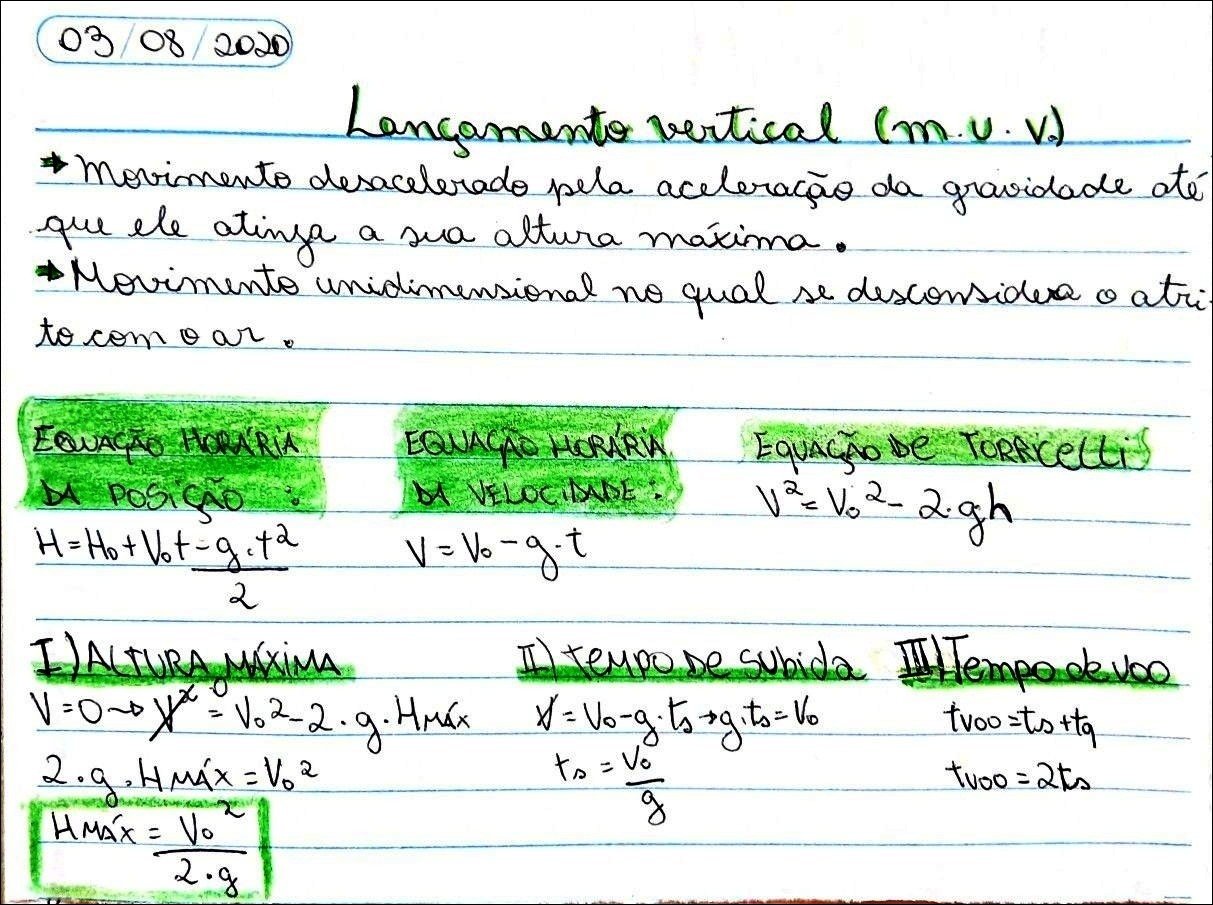 03/08/2020
Lançamento vertical (m.u.v.)
→ Movimento desacelerado pela aceleração da gravidade até
que ele atinja a sua altura máxima.
→ Movimento unidimensional no qual se desconsidera o atri-
to com o ar.
EQUAÇÃO HORÁRIA
DA POSIÇÃO:
H = H₀ + V₀t - g.t²
2
EQUAÇÃO HORÁRIA
DA VELOCIDADE:
V = V₀ - g.t
EQUAÇÃO DE TORRICELLI
V² = V₀² - 2.gh
I) ALTURA MÁXIMA
V = 0 → V² 0 = V₀² - 2.g.HMÁX
2.g.HMÁX = V₀²
HMÁX = V₀²
2.g
II) TEMPO DE SUBIDA
V = V₀ - g.ts → g.ts = V₀
ts = V₀
g
III) Tempo de voo
tvoo = ts + tq
tvoo = 2ts